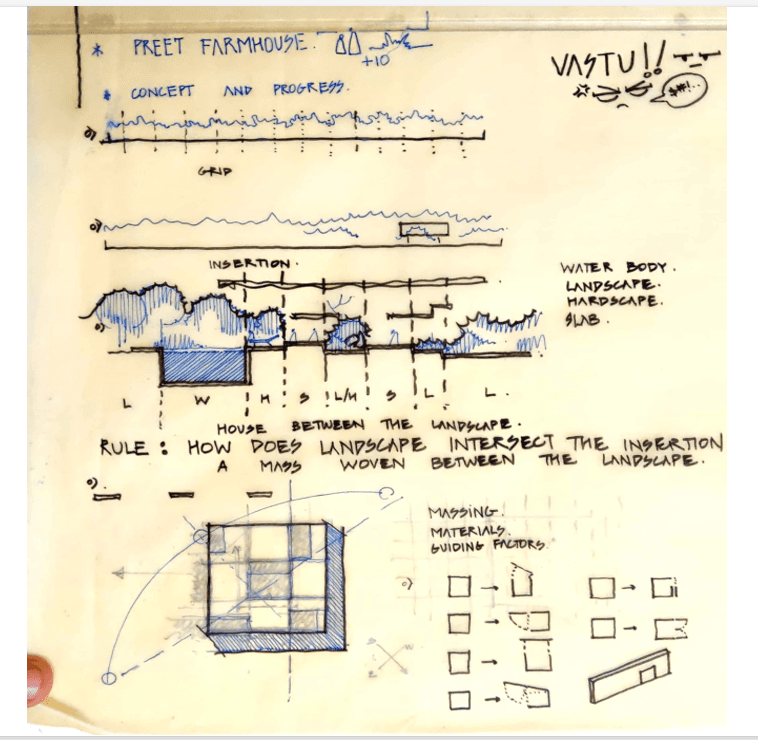 * PREET FARMHOUSE.
+10
VASTU!!
##!..
* CONCEPT AND PROGRESS.
GRID
INSERTION.
WATER BODY.
LANDSCAPE.
HARDSCAPE.
SLAB.
L W H S L/H S L L.
HOUSE BETWEEN THE LANDSCAPE.
RULE: HOW DOES LANDSCAPE INTERSECT THE INSERTION
A MASS WOVEN BETWEEN THE LANDSCAPE.
MASSING.
MATERIALS.
GUIDING FACTORS.